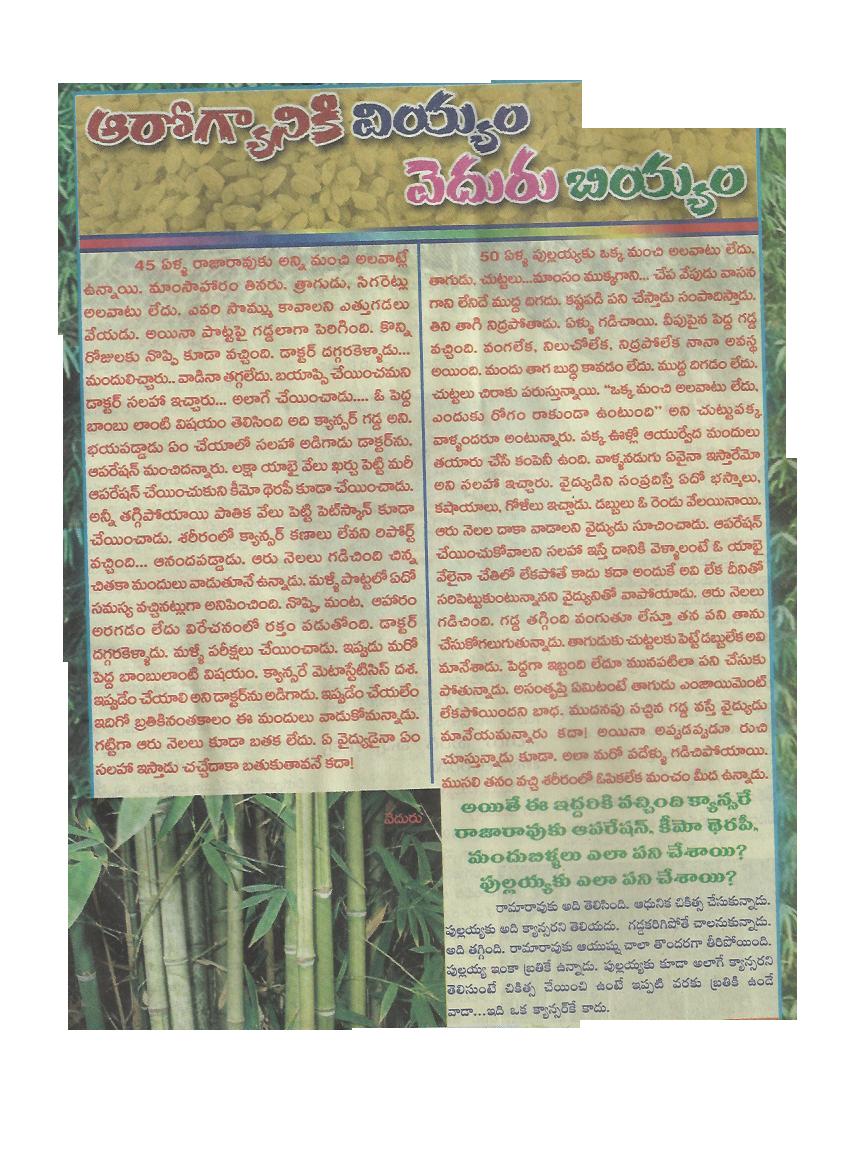 ఆరోగ్యానికి వియ్యం
వెదురు బియ్యం
45 ఏళ్ళ రాజారావుకు అన్ని మంచి అలవాట్లే
ఉన్నాయి. మాంసాహారం తినరు. త్రాగుడు, సిగరెట్లు
అలవాటు లేదు. ఎవరి సొమ్ము కావాలని ఎత్తుగడలు
వేయడు. అయినా పొట్టపై గడ్డలాగా పెరిగింది. కొన్ని
రోజులకు నొప్పి కూడా వచ్చింది. డాక్టర్ దగ్గరకెళ్ళాడు...
మందులిచ్చారు.. వాడినా తగ్గలేదు. బయాప్సి చేయించమని
డాక్టర్ సలహా ఇచ్చారు... అలాగే చేయించాడు.... ఓ పెద్ద
బాంబు లాంటి విషయం తెలిసింది అది క్యాన్సర్ గడ్డ అని.
భయపడ్డాడు ఏం చేయాలో సలహా అడిగాడు డాక్టర్‌ను.
ఆపరేషన్ మంచిదన్నారు. లక్షా యాభై వేలు ఖర్చు పెట్టి మరీ
ఆపరేషన్ చేయించుకుని కీమో థెరపీ కూడా చేయించాడు.
అన్నీ తగ్గిపోయాయి పాతిక వేలు పెట్టి పెట్‌స్కాన్ కూడా
చేయించాడు. శరీరంలో క్యాన్సర్ కణాలు లేవని రిపోర్ట్
వచ్చింది... ఆనందపడ్డాడు. ఆరు నెలలు గడిచింది చిన్న
చితకా మందులు వాడుతూనే ఉన్నాడు. మళ్ళీ పొట్టలో ఏదో
సమస్య వచ్చినట్లుగా అనిపించింది. నొప్పి, మంట, ఆహారం
అరగడం లేదు విరేచనంలో రక్తం పడుతోంది. డాక్టర్
దగ్గరకెళ్ళాడు. మళ్ళీ పరీక్షలు చేయించాడు. ఇప్పుడు మరో
పెద్ద బాంబులాంటి విషయం. క్యాన్సరే మెటాస్టేటిసిస్ దశ.
ఇప్పుడేం చేయాలి అని డాక్టర్‌ను అడిగాడు. ఇప్పుడేం చేయలేం
ఇదిగో బ్రతికినంతకాలం ఈ మందులు వాడుకోమన్నాడు.
గట్టిగా ఆరు నెలలు కూడా బతక లేదు. ఏ వైద్యుడైనా ఏం
సలహా ఇస్తాడు చచ్చేదాకా బతుకుతావనే కదా!
50 ఏళ్ల పుల్లయ్యకు ఒక్క మంచి అలవాటు లేదు.
తాగుడు, చుట్టలు...మాంసం ముక్కగాని... చేప వేపుడు వాసన
గాని లేనిదే ముద్ద దిగదు. కష్టపడి పని చేస్తాడు సంపాదిస్తాడు.
తిని తాగి నిద్రపోతాడు. ఏళ్ళు గడిచాయి. వీపుపైన పెద్ద గడ్డ
వచ్చింది. వంగలేక, నిలుచోలేక, నిద్రపోలేక నానా అవస్థ
అయింది. మందు తాగ బుద్ధి కావడం లేదు. ముద్ద దిగడం లేదు.
చుట్టలు చిరాకు పరుస్తున్నాయి. “ఒక్క మంచి అలవాటు లేదు,
ఎందుకు రోగం రాకుండా ఉంటుంది” అని చుట్టుపక్క
వాళ్ళందరూ అంటున్నారు. పక్క ఊళ్లో ఆయుర్వేద మందులు
తయారు చేసే కంపెనీ ఉంది. వాళ్ళనడుగు ఏవైనా ఇస్తారేమో
అని సలహా ఇచ్చారు. వైద్యుడిని సంప్రదిస్తే ఏదో భస్మాలు,
కషాయాలు, గోళీలు ఇచ్చాడు. డబ్బులు ఓ రెండు వేలయినాయి.
ఆరు నెలల దాకా వాడాలని వైద్యుడు సూచించాడు. ఆపరేషన్
చేయించుకోవాలని సలహా ఇస్తే దానికి వెళ్ళాలంటే ఓ యాభై
వేలైనా చేతిలో లేకపోతే కాదు కదా అందుకే అవి లేక దీనితో
సరిపెట్టుకుంటున్నానని వైద్యునితో వాపోయాడు. ఆరు నెలలు
గడిచింది. గడ్డ తగ్గింది వంగుతూ లేస్తూ తన పని తాను
చేసుకోగలుగుతున్నాడు. తాగుడుకు చుట్టలకు పెట్టే డబ్బులేక అవి
మానేశాడు. పెద్దగా ఇబ్బంది లేదూ మునపటిలా పని చేసుకు
పోతున్నాడు. అసంతృప్తి ఏమిటంటే తాగుడు ఎంజాయిమెంట్
లేకపోయిందని బాధ. ముదనపు సచ్చిన గడ్డ వస్తే వైద్యుడు
మానేయమన్నారు కదా! అయినా అప్పుడప్పుడూ రుచి
చూస్తున్నాడు కూడా. అలా మరో పదేళ్ళు గడిచిపోయాయి.
ముసలి తనం వచ్చి శరీరంలో ఓపికలేక మంచం మీద ఉన్నాడు.
అయితే ఈ ఇద్దరికి వచ్చింది క్యాన్సరే
రాజారావుకు ఆపరేషన్, కీమో థెరపీ,
మందుబిళ్ళలు ఎలా పని చేశాయి?
పుల్లయ్యకు ఎలా పని చేశాయి?
రామారావుకు అది తెలిసింది. ఆధునిక చికిత్స చేసుకున్నాడు.
పుల్లయ్యకు అది క్యాన్సరని తెలియదు. గడ్డకరిగిపోతే చాలనుకున్నాడు.
అది తగ్గింది. రామారావుకు ఆయుష్షు చాలా తొందరగా తీరిపోయింది.
పుల్లయ్య ఇంకా బ్రతికే ఉన్నాడు. పుల్లయ్యకు కూడా అలాగే క్యాన్సరని
తెలిసుంటే చికిత్స చేయించి ఉంటే ఇప్పటి వరకు బ్రతికి ఉండే
వాడా...ఇది ఒక క్యాన్సర్‌కే కాదు.
వెదురు